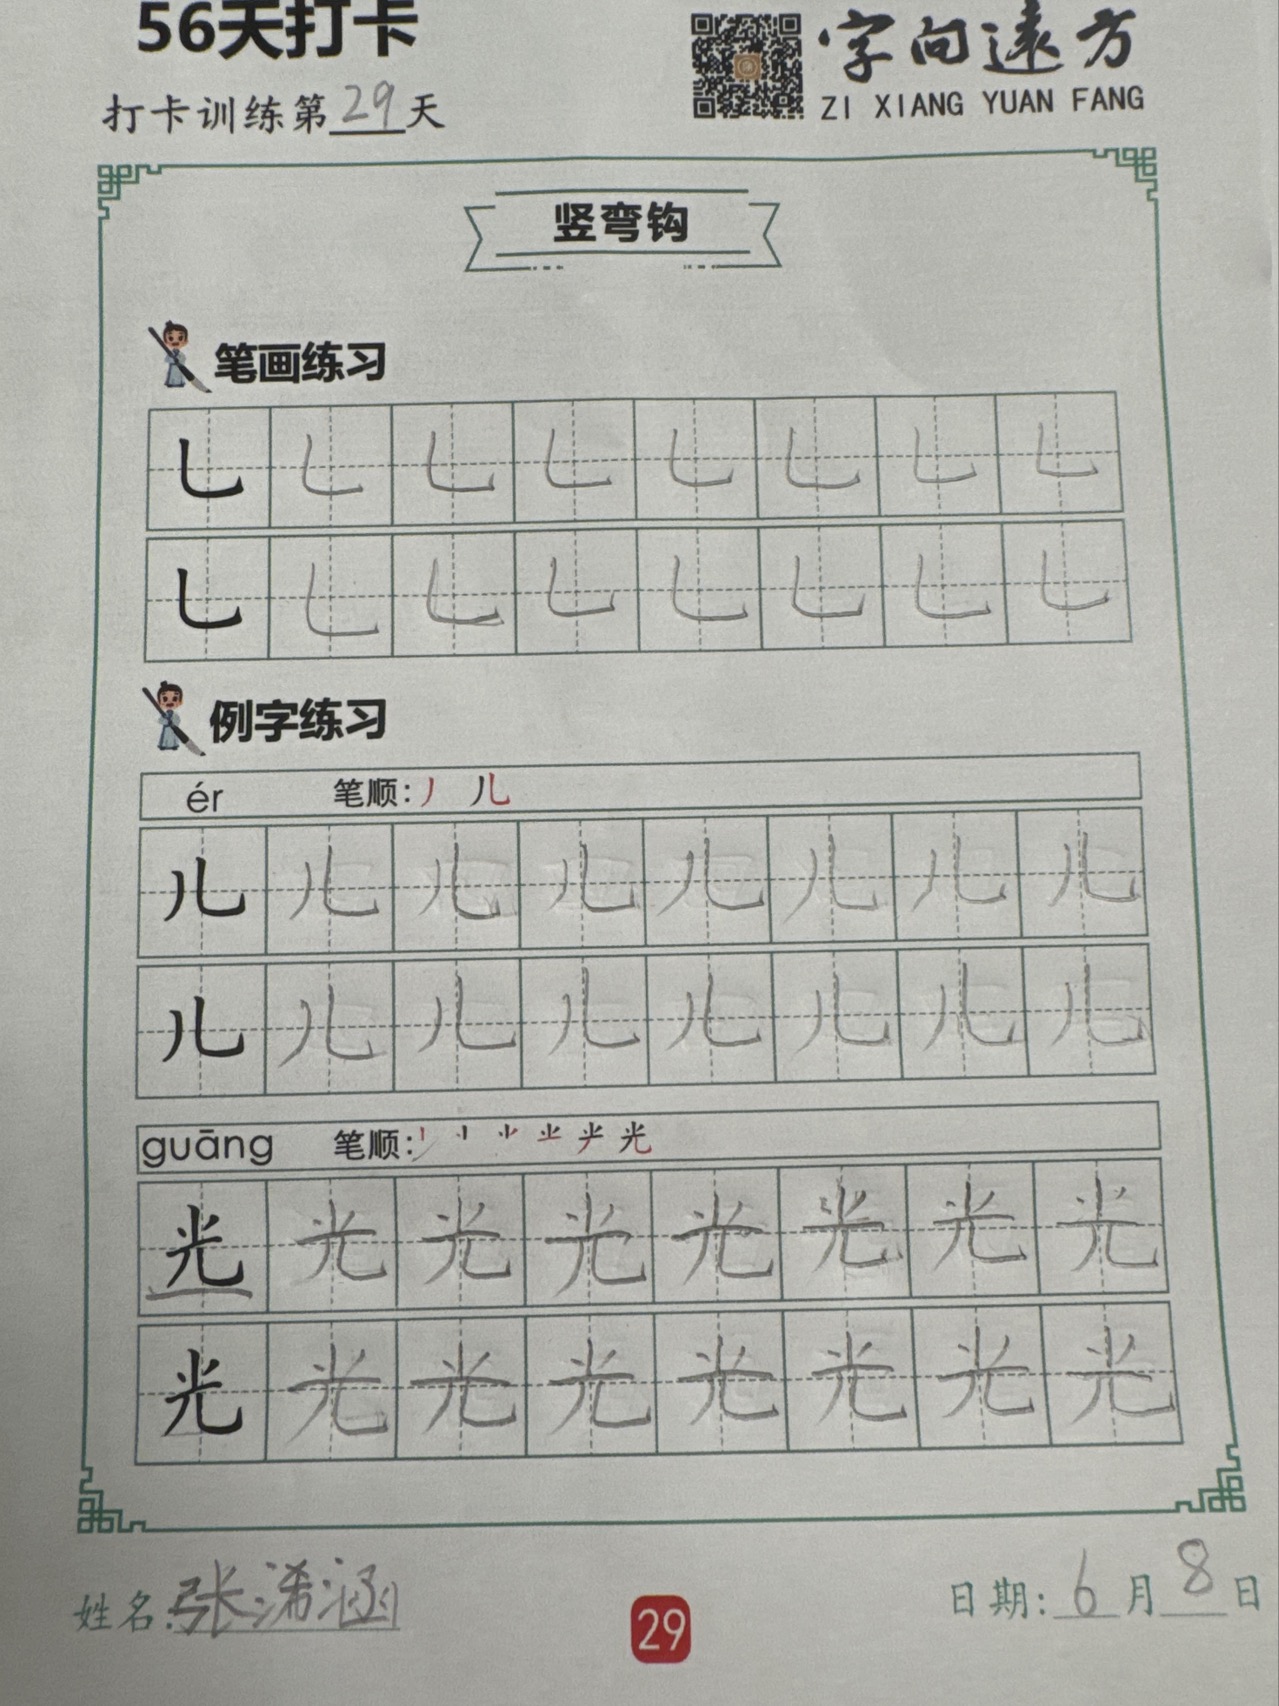 56天打卡
字向遠方
ZI XIANG YUAN FANG
打卡训练第29天
竖弯钩
笔画练习
乚 乚 乚 乚 乚 乚 乚 乚
乚 乚 乚 乚 乚 乚 乚 乚
例字练习
ér 笔顺: 丿 儿
儿 儿 儿 儿 儿 儿 儿 儿
儿 儿 儿 儿 儿 儿 儿 儿
guāng 笔顺: 光
光 光 光 光 光 光 光 光
光 光 光 光 光 光 光 光
姓名:张浠涵
29
日期:6月8日